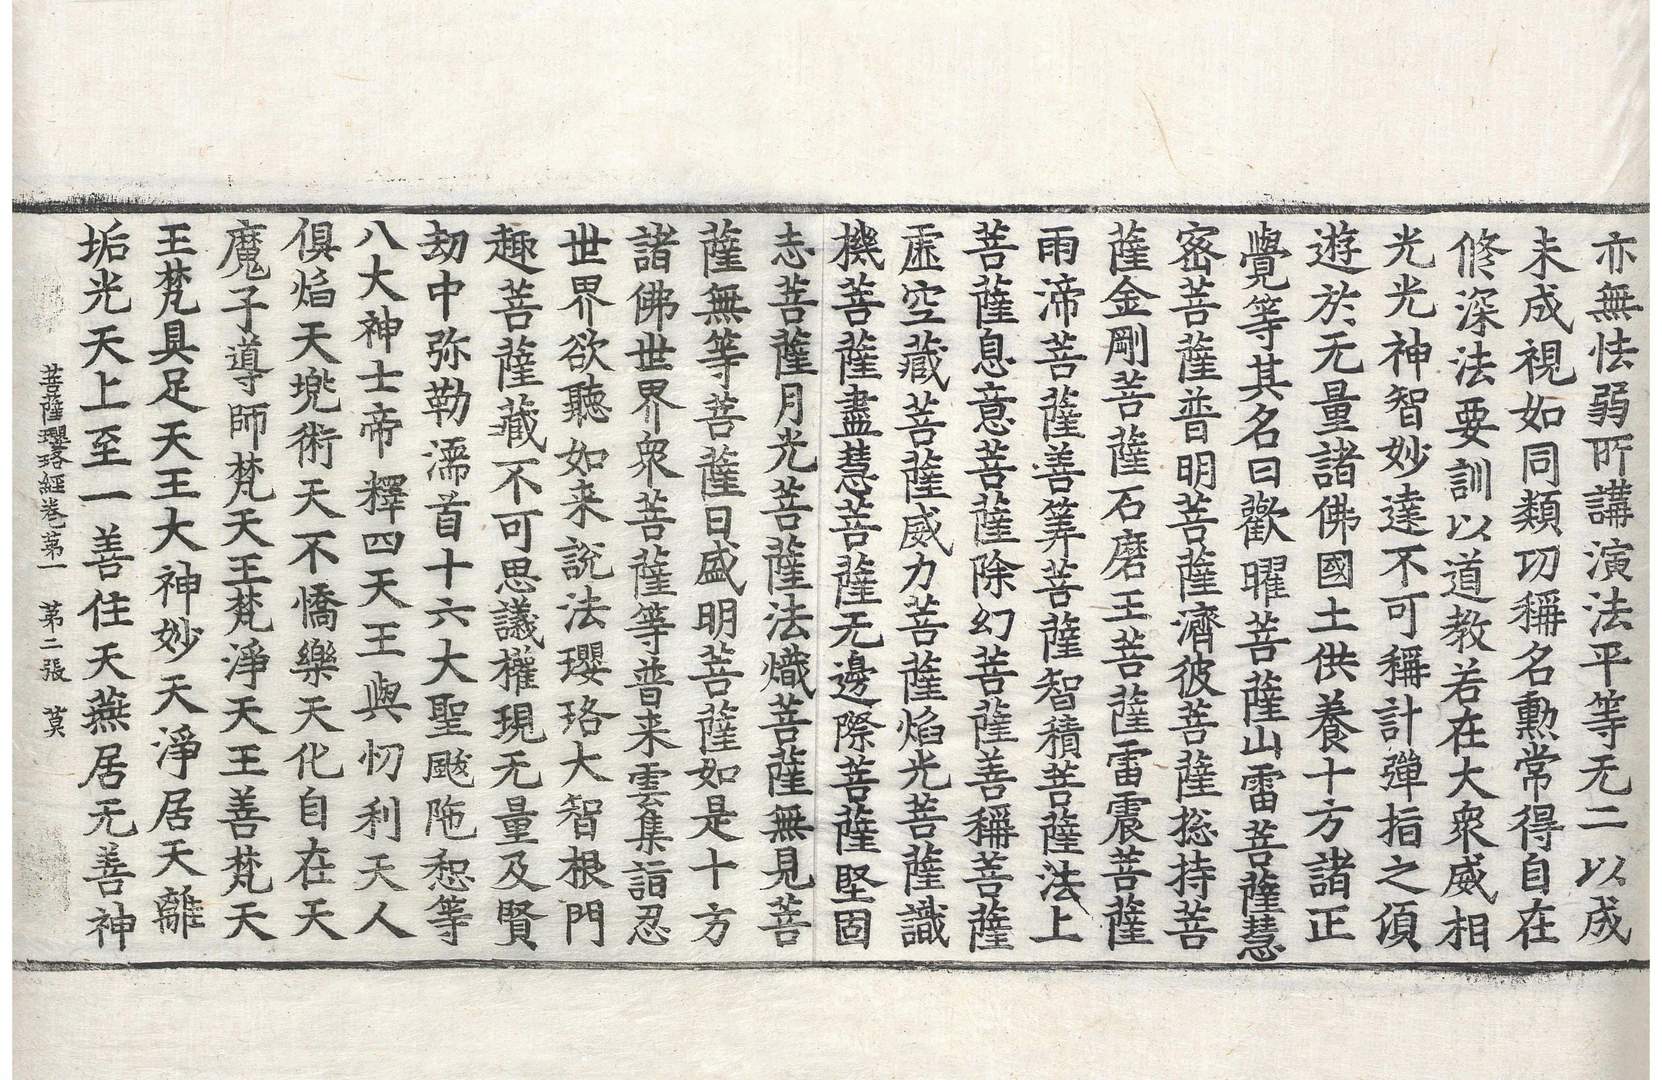 亦無怯弱所講演法平等无二以成
未成視如同類切稱名勲常得自在
修深法要訓以道教若在大衆威相
光光神智妙達不可稱計彈指之湏
遊於无量諸佛國土供養十方諸正
覺等其名曰歡曜菩薩山雷菩薩慧
密菩薩普明菩薩濟彼菩薩揔持菩
薩金剛菩薩石磨王菩薩雷震菩薩
雨渧菩薩善筭菩薩智積菩薩法上
菩薩息意菩薩除幻菩薩善稱菩薩
虛空藏菩薩威力菩薩焰光菩薩識
機菩薩盡慧菩薩无邊際菩薩堅固
志菩薩月光菩薩法熾菩薩無見菩
薩無等菩薩日盛明菩薩如是十方
諸佛世界衆菩薩等普来雲集詣忍
世界欲聽如来說法瓔珞大智根門
趣菩薩藏不可思議權現无量及賢
劫中弥勒濡首十六大聖颰陁恕等
八大神士帝釋四天王與忉利天人
俱焰天兠術天不憍樂天化自在天
魔子導師梵天王梵淨天王善梵天
王梵具足天王大神妙天淨居天離
垢光天上至一善住天燕居无善神
菩薩瓔珞經卷第一 第二張 莫